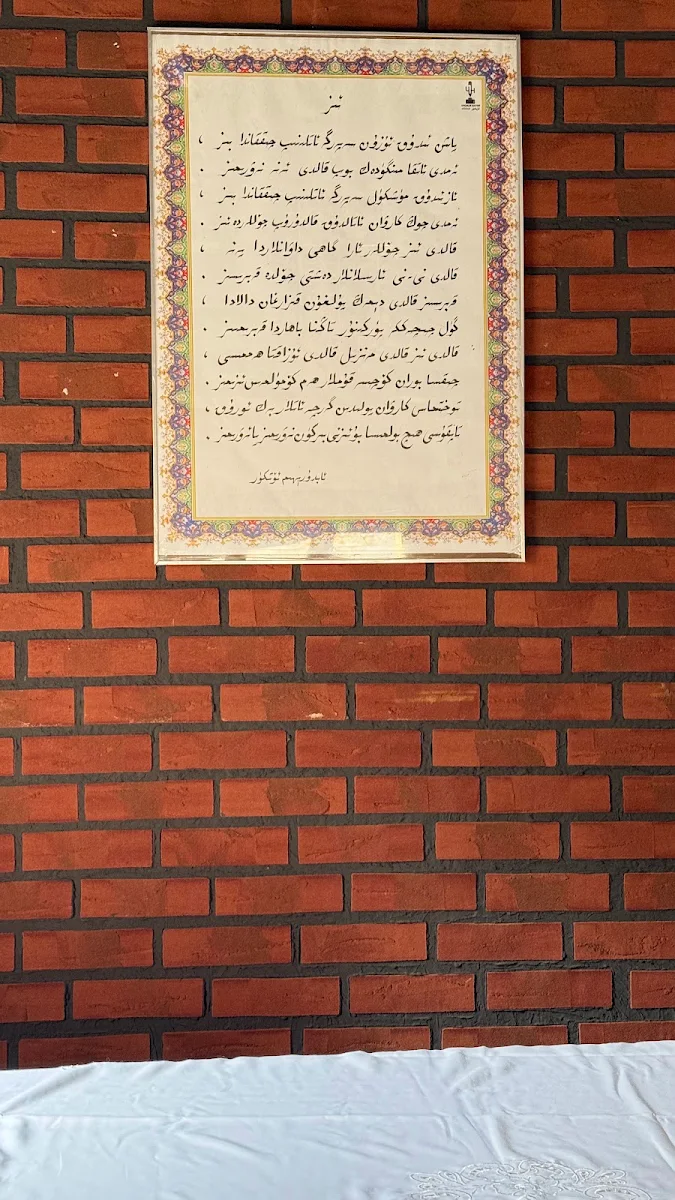 ئىز
ياش ئىدۇق ئۇزۇن سەپەرگە ئاتلىنىپ ماڭغاندا بىز ،
ئەمدى ئاتقا مىنگۈدەك بوپ قالدى ئەنە نەۋرىمىز .
ئاز ئىدۇق مۈشكۈل سەپەرگە ئاتلىنىپ چىققاندا بىز ،
ئەمدى چوڭ كارۋان ئاتالدۇق قالدۇرۇپ چۆللەردە ئىز .
قالدى ئىز چۆللەر ئارا گاھى داۋانلاردا يەنە ،
قالدى نى-نى ئارسلانلار دەشتى چۆلدە قەبرىسىز .
قەبرىسىز قالدى دېمەڭ يۇلغۇن قىزارغان دالادا ،
گۈل چېچەككە پۈركىنۈر تاڭنا باھاردا قەبرىمىز .
قالدى ئىز قالدى مەنزىل قالدى ئۇزاقتا ھەممىسى ،
چىقسا بوران كۆچسە قۇملار ھەم كۆمۈلمەس ئىزىمىز .
توختىماس كارۋان يولىدىن گەرچە ئاتلار بەك ئورۇق ،
تاپقۇسى ھېچ بولمىسا بۇ ئىزنى بىر كۈن نەۋرىمىز يا ئەۋرىمىز .
ئابدۇرېھىم ئۆتكۈر